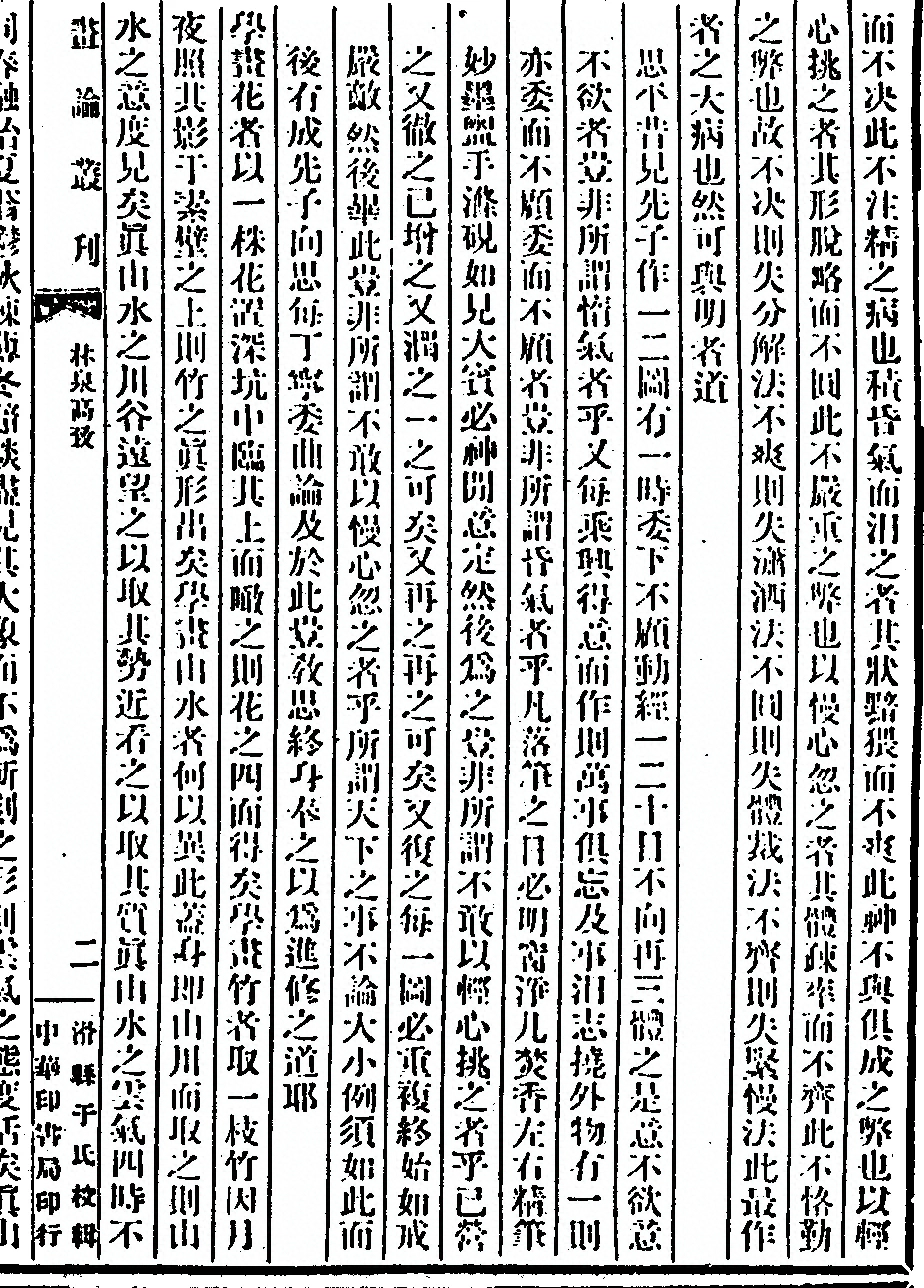 而不决此不注精之病也積昏氣而汩之者其狀黯猥而不爽此神不與俱成之弊也以輕
心挑之者其形脫略而不圓此不嚴重之弊也以慢心忽之者其體疎率而不齊此不恪勤
之弊也故不决則失分解法不爽則失瀟洒法不圓則失體裁法不齊則失緊慢法此最作
者之大病也然可與明者道
思平昔見先子作一二圖有一時委下不顧動經一二十日不向再三體之是意不欲意
不欲者豈非所謂惰氣者乎又每乘興得意而作則萬事俱忘及事汩志撓外物有一則
亦委而不顧委而不顧者豈非所謂昏氣者乎凡落筆之日必明窗淨几焚香左右精筆
妙墨盥手滌硯如見大賓必神閒意定然後爲之豈非所謂不敢以輕心挑之者乎已營
之又徹之已增之又潤之一之可矣又再之再之可矣又復之每一圖必重複終始如戒
嚴敵然後畢此豈非所謂不敢以慢心忽之者乎所謂天下之事不論大小例須如此而
後有成先子向思每丁寧委曲論及於此豈敎思終身奉之以爲進修之道耶
學畫花者以一株花置深坑中臨其上而瞰之則花之四面得矣學畫竹者取一枝竹因月
夜照其影于素壁之上則竹之眞形出矣學畫山水者何以異此蓋身卽山川而取之則山
水之意度見矣眞山水之川谷遠望之以取其勢近看之以取其質眞山水之雲氣四時不
畫論叢刊
林泉高致
二
滑縣于氏校輯
中華印書局印行
同春融怡夏蓊鬱秋疎薄冬黯淡盡見其大象而不爲斬刻之形則雲氣之態度活矣眞山